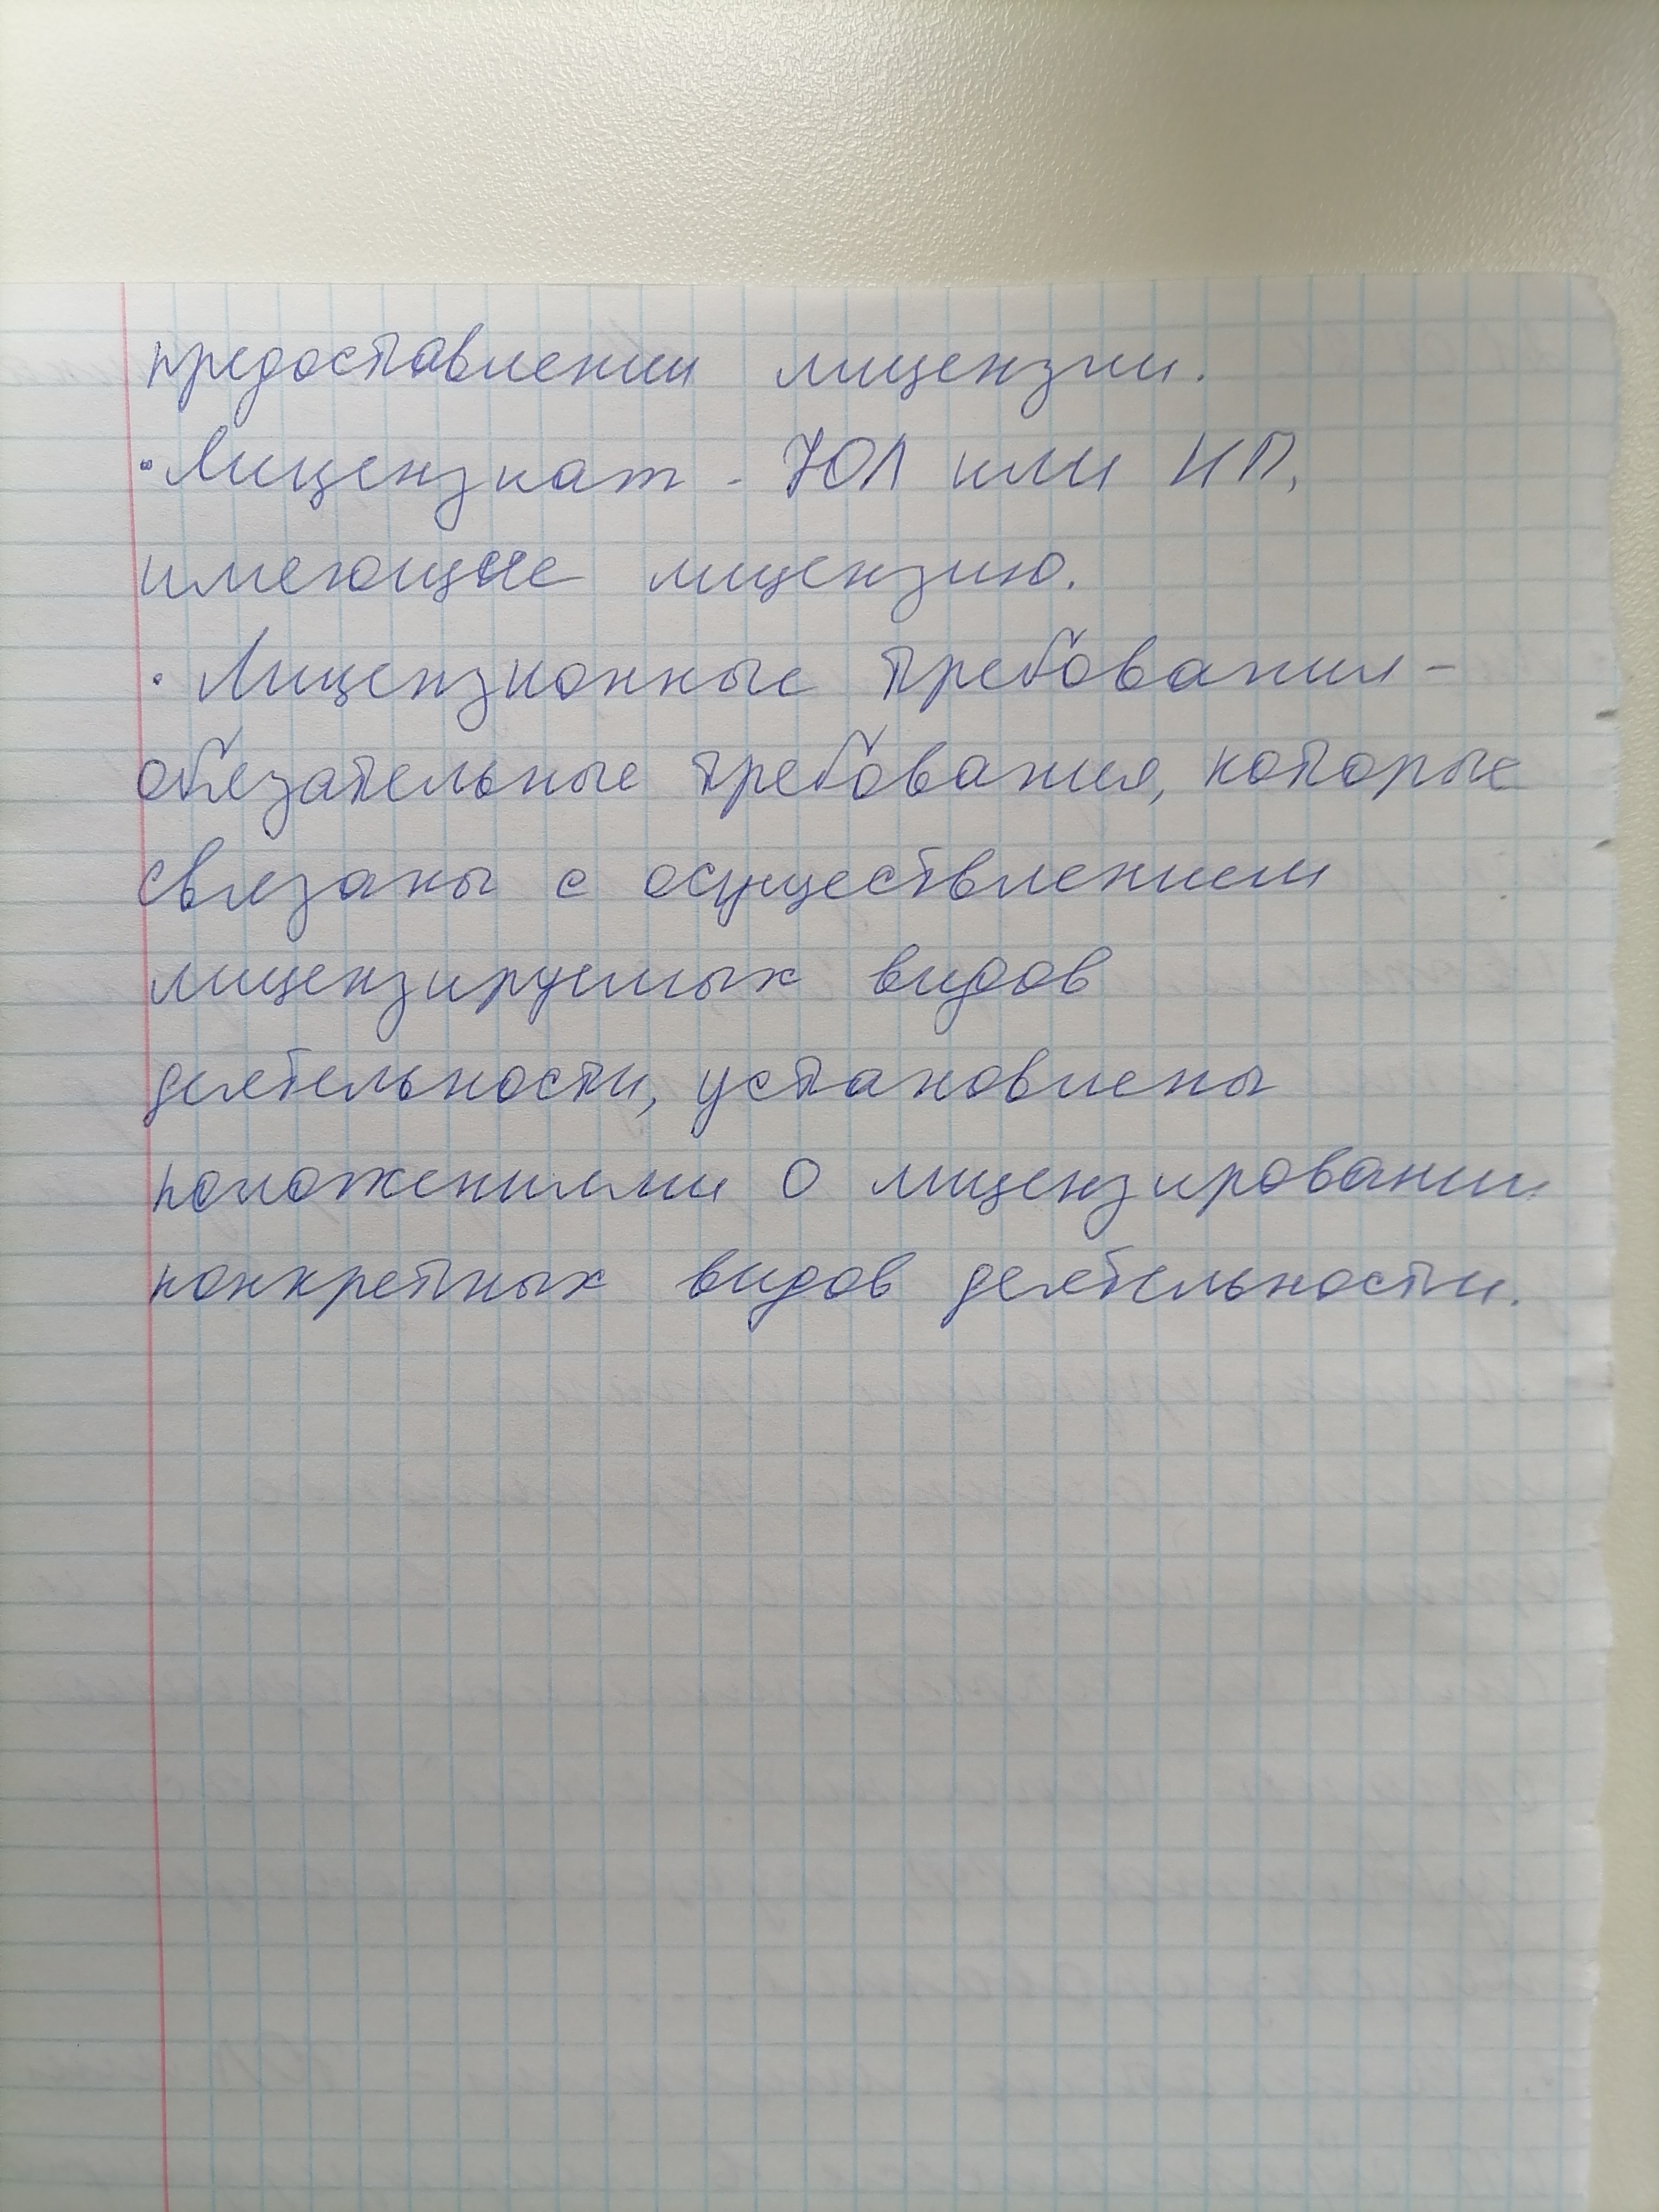 предоставлении лицензии.
• Лицензиат - ЮЛ или ИП,
имеющие лицензию.
• Лицензионные требования -
обязательные требования, которые
связаны с осуществлением
лицензируемых видов
деятельности, установлены
положениями о лицензировании
конкретных видов деятельности.